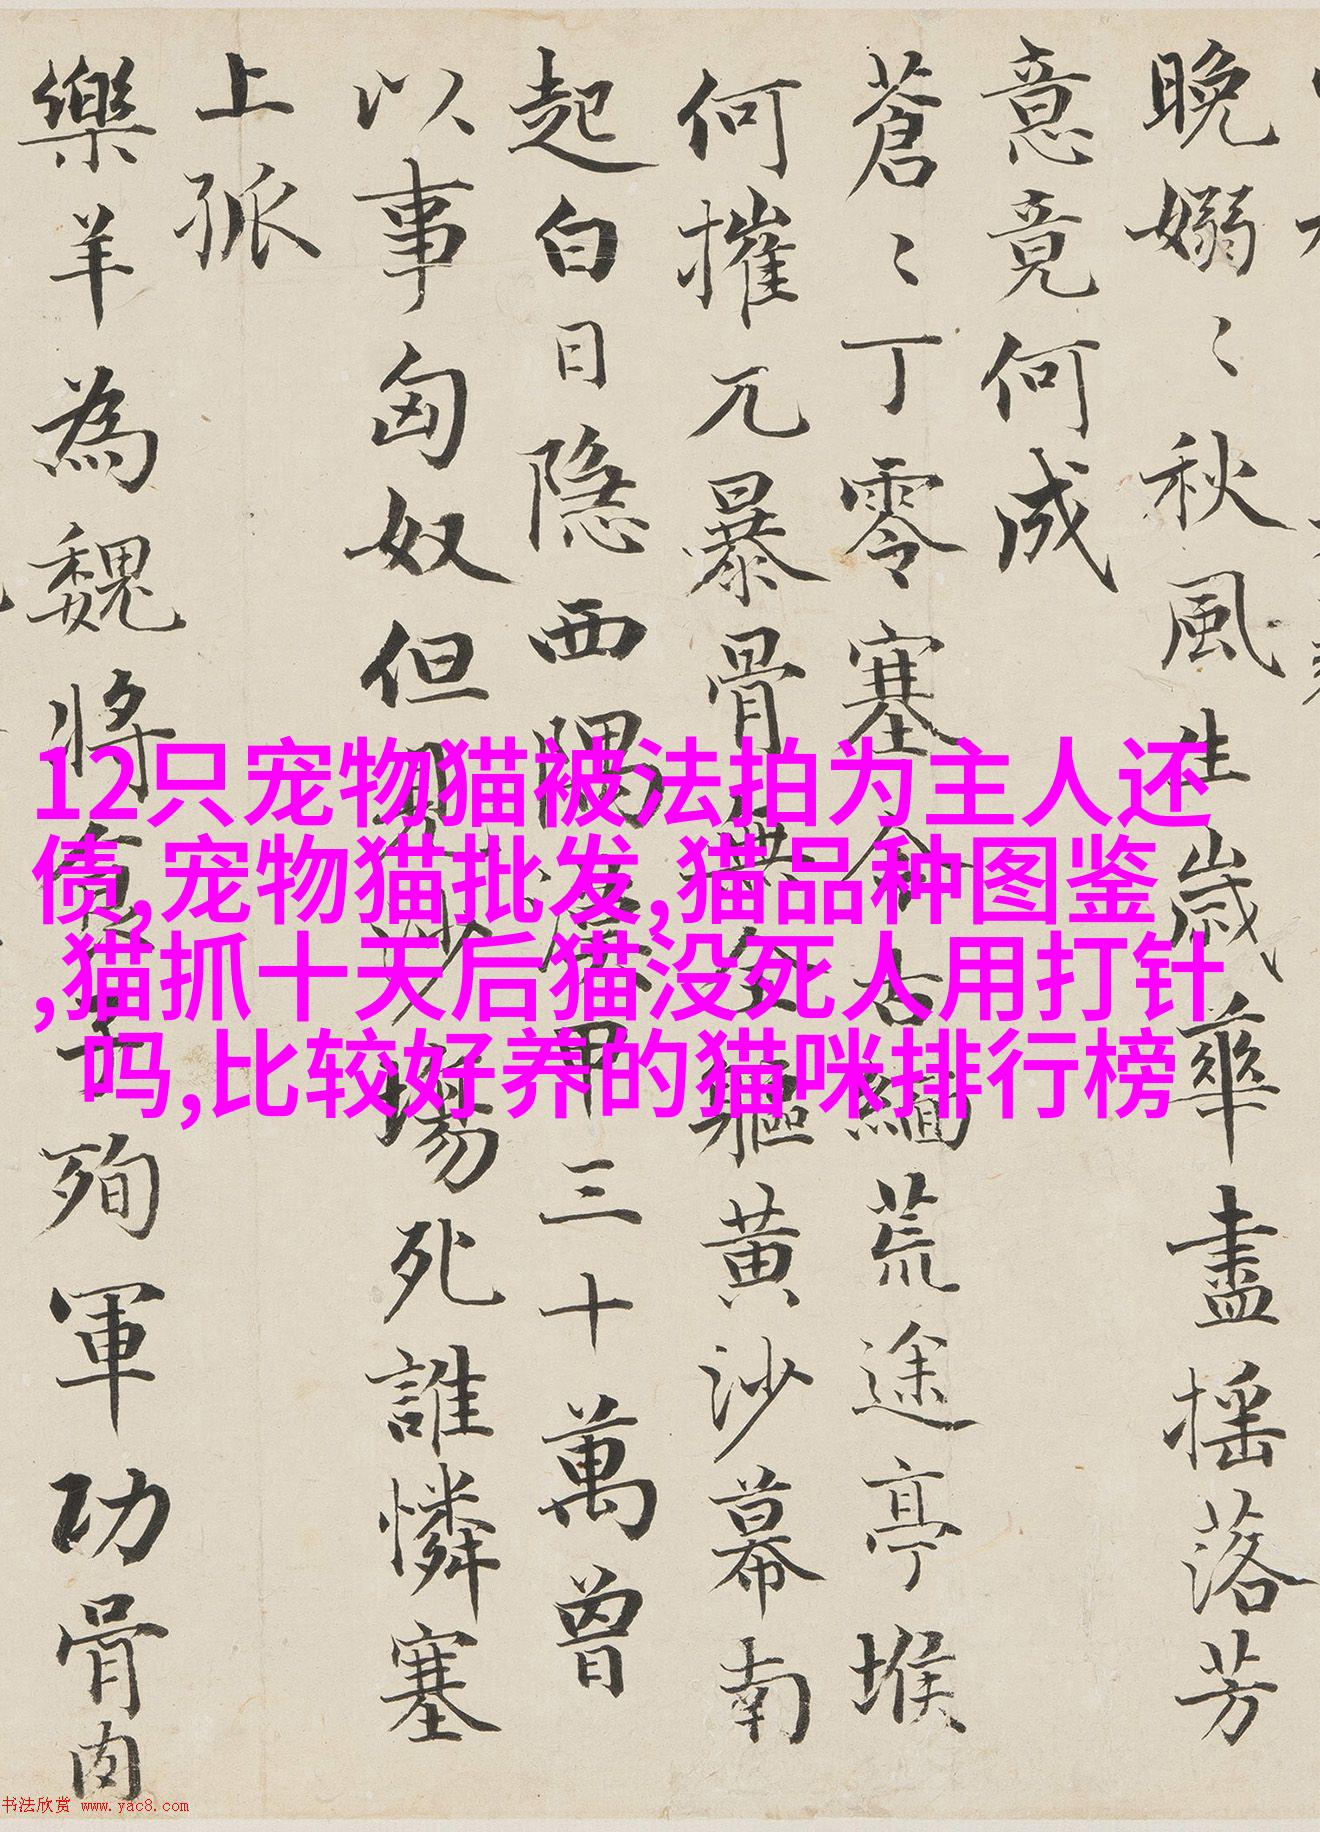 晚嫋〻秋風生歲華盡揺落芳
意竟何成
蒼〻丁零塞今古緬荒途亭堠
何摧兀暴骨無全軀黄沙幕南
起白日隱西隅漢甲三十萬曾
以事匈奴但見沙場死誰憐塞
上孤
樂羊為魏將食子殉軍功骨肉
12只宠物猫被法拍为主人还
债,宠物猫批发,猫品种图鉴
,猫抓十天后猫没死人用打针
吗,比较好养的猫咪排行榜
书法欣赏 www.yac8.com